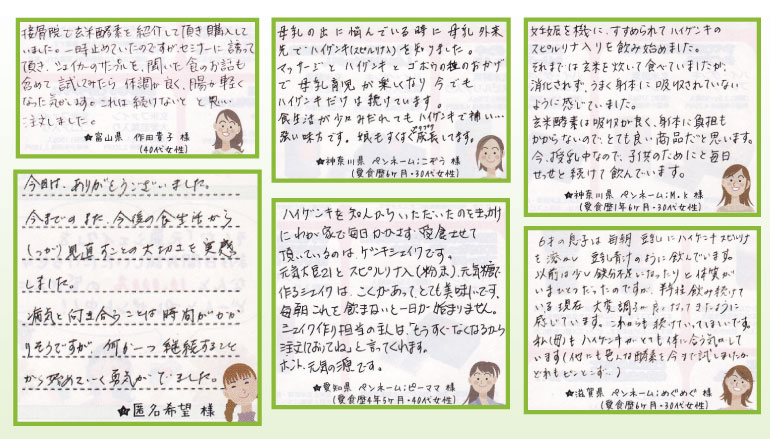 接骨院で玄米酵素を紹介して頂き購入して
いました。一時止めていたのですが、セミナーに誘って
頂き、シェイカーのサンプルを、聞いた食のお話も
含めて試してみたら体調が良く、腸が軽く
なった気がします。これは続けないとと思い
注文しました。
★富山県 作田貴子 様
(40代女性)
母乳の出に悩んでいる時に母乳外来
先でハイゲンキ(スピルリナ入り)を知りました。
マッサージとハイゲンキとゴボウの種のおかげ
で母乳育児が楽しくなり今でも
ハイゲンキだけは続けています。
食生活が少々みだれてもハイゲンキで補い…
強い味方です。娘もすくすく成長してます。
★神奈川県 ペンネーム;こぞう 様
(愛食歴6ヶ月・30代女性)
妊娠を機に、すすめられてハイゲンキの
スピルリナ入りを飲み始めました。
それまでは玄米を炊いて食べていましたが、
消化されず、うまく身体に吸収されていない
ように感じていました。
玄米酵素は吸収が良く、身体に負担も
かからないので、とても良い商品だと思います。
今、授乳中なので、子供のためにと毎日
せっせと続けて飲んでいます。
★神奈川県 ペンネーム;M.k 様
(愛食歴1年6ヶ月・30代女性)
今日は、ありがとうございました。
今までのまた、今後の食生活から
しっかり見直すことの大切さを実感
しました。
病気と向き合うことは時間がかか
りそうですが、何か一つ継続すること
から始めていく勇気がでました。
★匿名希望 様
ハイゲンキを知人からいただいたのをきっかけ
にわが家で毎日かかさず愛食させて
頂いているのは、ゲンキシェイクです。
元気大豆21とスピルリナ入(粉末)、元気糖で
作るシェイクは、こくがあって、とても美味しいです。
毎朝これを飲まないと一日が始まりません。
シェイク作り担当の主人は、「もうすぐなくなるから
注文しておいてね」と言ってくれます。
ホント、元気の源です。
★愛知県 ペンネーム;ピーママ 様
(愛食歴4年5ヶ月・40代女性)
6才の息子は毎朝 豆乳にハイゲンキスピルリナ
を溶かし 豆乳青汁のように飲んでいます。
以前は少し鉄分不足になったりと体質が
いまひとつだったのですが、毎日飲み続けて
いる現在 大変調子が良くなってきたように
感じています。これからも続けていってほしいです。
私(母)もハイゲンキがとても体に合う気がして
います(他にも色んな酵素を今まで試しましたが
どれもピンとこず…)
★滋賀県 ペンネーム;めぐめぐ 様
(愛食歴6ヶ月・30代女性)